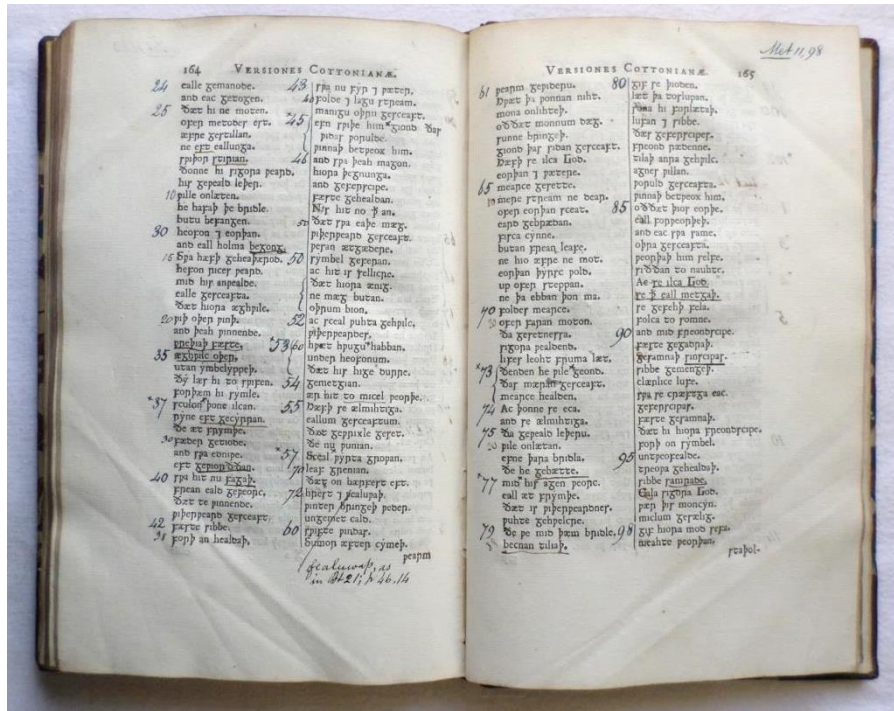 164 VERSIONES COTTONIANÆ.
24 ealle gemanode.
and eac getogen.
25 Ðæt hi ne moten.
ofer metodes est.
æfre gestillan.
ne eft eallunga.
sƿiþor stirian.
Ðonne hi sigora ƿeard.
his geƿeald leþer.
10 ƿille onlæten.
he hafaþ þe bridle.
butu befangen.
30 heofon ⁊ eorþan.
and eall holma begong.
15 Sƿa hæfþ geheaþærod.
hefon ricer ƿeard.
mid his anƿealde.
ealle gesceafta.
Ðæt hiora æghƿilc.
20 ƿiþ oþer ƿinþ.
and þeah ƿinnende.
ƿreþiaþ fæste.
35 æghƿilc oþer.
utan ymbclyppeþ.
Ðy læs hi to sƿifen.
Forþæm hi symle.
*37 sculon þone ilcan.
ryne eft gecyrran.
Ðe æt frymþe.
30 fæder getiode.
and sƿa edniƿe.
eft geƿiorþan.
40 sƿa hit nu fagaþ.
Frean eald geƿeorc.
Ðæt te ƿinnende.
ƿiþerƿeard gesceaft.
42 fæste sibbe.
forþ an healdaþ.
43 sƿa nu fyr ⁊ ƿæter.
folde ⁊ lagu stream.
manigu oþru gesceaft.
45 efn sƿiþe him giond ðas
ƿidas ƿorulde.
ƿinnaþ betƿeox him.
46 and sƿa þeah magon.
hiora þegnunga.
and geferscipe.
fæste gehealdan.
Nis hit no þ an.
Ðæt sƿa eaþe mæg.
ƿiþerƿeard gesceaft.
ƿesan ætgædere.
50 symbel geferan.
ac hit is sellicre.
Ðæt hiora ænig.
ne mæg butan.
oþrum bion.
52 ac sceal ƿuhta gehƿilc.
ƿiþerƿeardes.
*53 60 hƿæt hƿugu habban.
under heofonum.
Ðæt his hige durre.
54 gemetgian.
ær hit to micel ƿeorþe.
55 Hæfþ se ælmihtiga.
eallum gesceaftum.
Ðæt geƿrixle geset.
Ðe nu ƿunian.
*57 Sceal ƿyrta groƿan.
70 leaf grenian.
Ðæt on hærfest eft.
72 hrest ⁊ ƿealuƿaþ.
ƿinter bringeþ ƿeder.
ungemet cald.
60 sƿifte ƿindas.
Sumor æfter cymeþ.
ƿearm
fealuwaþ, as
in Bt 21; p 46. 14
Met 11, 98
VERSIONES COTTONIANÆ. 165
61 ƿearm geƿideru.
Hƿæt þa ƿonnan niht.
mona onlihteþ.
oððæt monnum dæg.
sunne bringeþ.
giond þas sidan gesceaft.
Hæfþ se ilca God.
eorþan ⁊ ƿætere.
65 mearce gesette.
10 mere stream ne dear.
ofer eorþan sceat.
eard gebrædan.
fisca cynne.
butan frean leafe.
ne hio æfre ne mot.
eorþan þyrsc ƿold.
up ofer steppan.
ne þa ebban þon ma.
70 foldes mearce.
20 ofer faran moton.
Ða gesetnessa.
sigora ƿealdend.
lifes leoht fruma læt.
*73 Ðenden he ƿile geond.
Ðas mæran gesceaft.
mearce healden.
74 Ac þonne se eca.
and se ælmihtiga.
75 Ða geƿeald leþeru.
30 ƿile onlætan.
efne þara bridla.
Ðe he gebætte.
*77 mid his agen ƿeorc.
eall æt frymþe.
Ðæt is ƿiþerƿeardnes.
ƿuhte gehƿelcre.
79 Ðe ƿe mid þæm bridle.
becnan tiliaþ.
80 gif se þioden.
læt þa toslupan.
Sona hi forlætaþ.
lufan ⁊ sibbe.
Ðæs geferscipes.
freond rædenne.
tilaþ anra gehƿilc.
agnes ƿillan.
ƿoruld gesceafta.
ƿinnaþ betƿeox him.
85 oððæt þios eorþe.
eall forƿeorþeþ.
and eac sƿa same.
oþra gesceafta.
ƿeorþaþ him selfe.
siððan to nauhte.
Ac se ilca God.
se þ eall metgaþ.
se gefehþ fela.
folca to somne.
90 and mid freondscipe.
fæste gegadraþ.
gesamnaþ sinscipas.
sibbe gemengeþ.
clænlice lufe.
sƿa se cræftga eac.
geferscipas.
fæste gesamnaþ.
Ðæt hi hiora freondscipe.
forþ on symbel.
95 untƿeofealde.
treoƿa gehealdaþ.
sibbe samrade.
Eala sigora God.
ƿær þis moncyn.
miclum gesælig.
98 gif hiora mod sefa.
meahte ƿeorþan.
staþol-